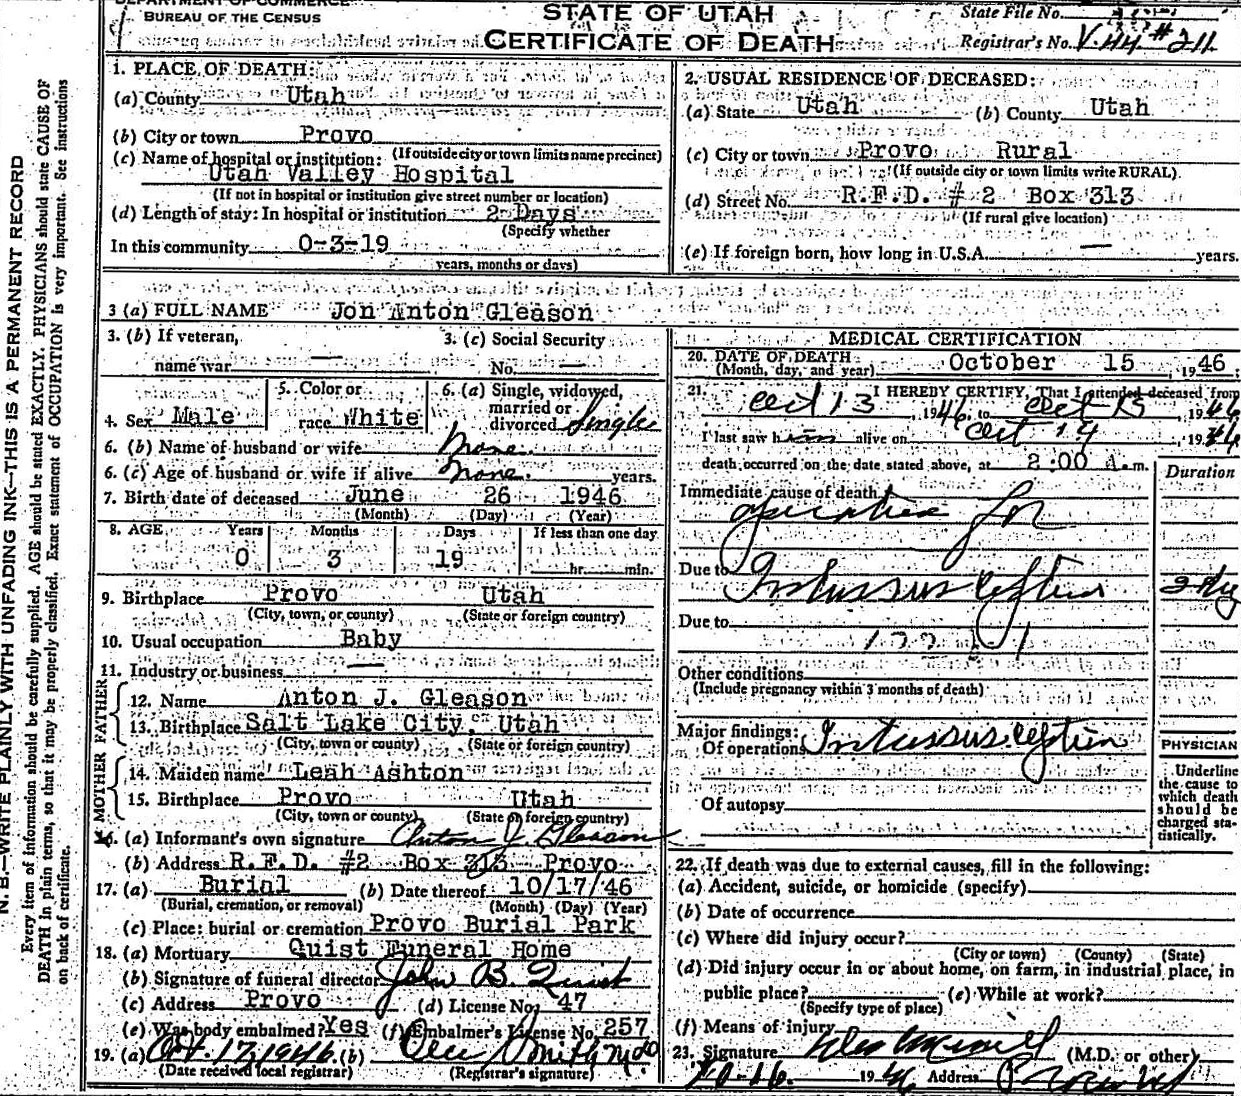 DEPARTMENT OF COMMERCE
BUREAU OF THE CENSUS
STATE OF UTAH
CERTIFICATE OF DEATH
State File No.
Registrar's No. V-44 # 211
N. B.—WRITE PLAINLY WITH UNFADING INK—THIS IS A PERMANENT RECORD
Every item of information should be carefully supplied. AGE should be stated EXACTLY. PHYSICIANS should state CAUSE OF
DEATH in plain terms, so that it may be properly classified. Exact statement of OCCUPATION is very important. See instructions
on back of certificate.
1. PLACE OF DEATH:
(a) County Utah
(b) City or town Provo
(If outside city or town limits name precinct)
(c) Name of hospital or institution:
Utah Valley Hospital
(If not in hospital or institution give street number or location)
(d) Length of stay: In hospital or institution 2 Days
(Specify whether
In this community 0-3-19
years, months or days)
2. USUAL RESIDENCE OF DECEASED:
(a) State Utah (b) County Utah
(c) City or town Provo Rural
(If outside city or town limits write RURAL)
(d) Street No. R.F.D. # 2 Box 313
(If rural give location)
(e) If foreign born, how long in U.S.A. — years.
3 (a) FULL NAME Jon Anton Gleason
3. (b) If veteran, name war —
3. (c) Social Security No. —
4. Sex Male
5. Color or race White
6. (a) Single, widowed, married or divorced Single
6. (b) Name of husband or wife None
6. (c) Age of husband or wife if alive None. years.
7. Birth date of deceased June 26 1946
(Month) (Day) (Year)
8. AGE Years Months Days If less than one day
0 3 19 hr. min.
9. Birthplace Provo Utah
(City, town, or county) (State or foreign country)
10. Usual occupation Baby
11. Industry or business —
FATHER
12. Name Anton J. Gleason
13. Birthplace Salt Lake City, Utah
(City, town or county) (State or foreign country)
MOTHER
14. Maiden name Leah Ashton
15. Birthplace Provo Utah
(City, town or county) (State or foreign country)
16. (a) Informant's own signature Anton J. Gleason
(b) Address R.F.D. #2 Box 313 Provo
17. (a) Burial (b) Date thereof 10/17/46
(Burial, cremation, or removal) (Month) (Day) (Year)
(c) Place: burial or cremation Provo Burial Park
18. (a) Mortuary Quist Funeral Home
(b) Signature of funeral director John B. Quist
(c) Address Provo (d) License No. 47
(e) Was body embalmed? Yes (f) Embalmer's License No. 257
19. (a) Oct. 17, 1946 (b)
(Date received local registrar) (Registrar's signature)
MEDICAL CERTIFICATION
20. DATE OF DEATH October 15, 1946
(Month, day, and year)
21. I HEREBY CERTIFY, That I attended deceased from
Oct 13, 1946, to Oct 15, 1946
I last saw him alive on Oct 14, 1946
death occurred on the date stated above, at 2:00 A.m.
Duration
Immediate cause of death
operation for
Due to Intussusception
Due to
Other conditions
(Include pregnancy within 3 months of death)
Major findings:
Of operations Intussusception
Of autopsy
PHYSICIAN
Underline
the cause to
which death
should be
charged sta-
tistically.
22. If death was due to external causes, fill in the following:
(a) Accident, suicide, or homicide (specify)
(b) Date of occurrence
(c) Where did injury occur?
(City or town) (County) (State)
(d) Did injury occur in or about home, on farm, in industrial place, in
public place? (e) While at work?
(Specify type of place)
(f) Means of injury
23. Signature (M.D. or other)
10-16. 1946 Address Provo Ut